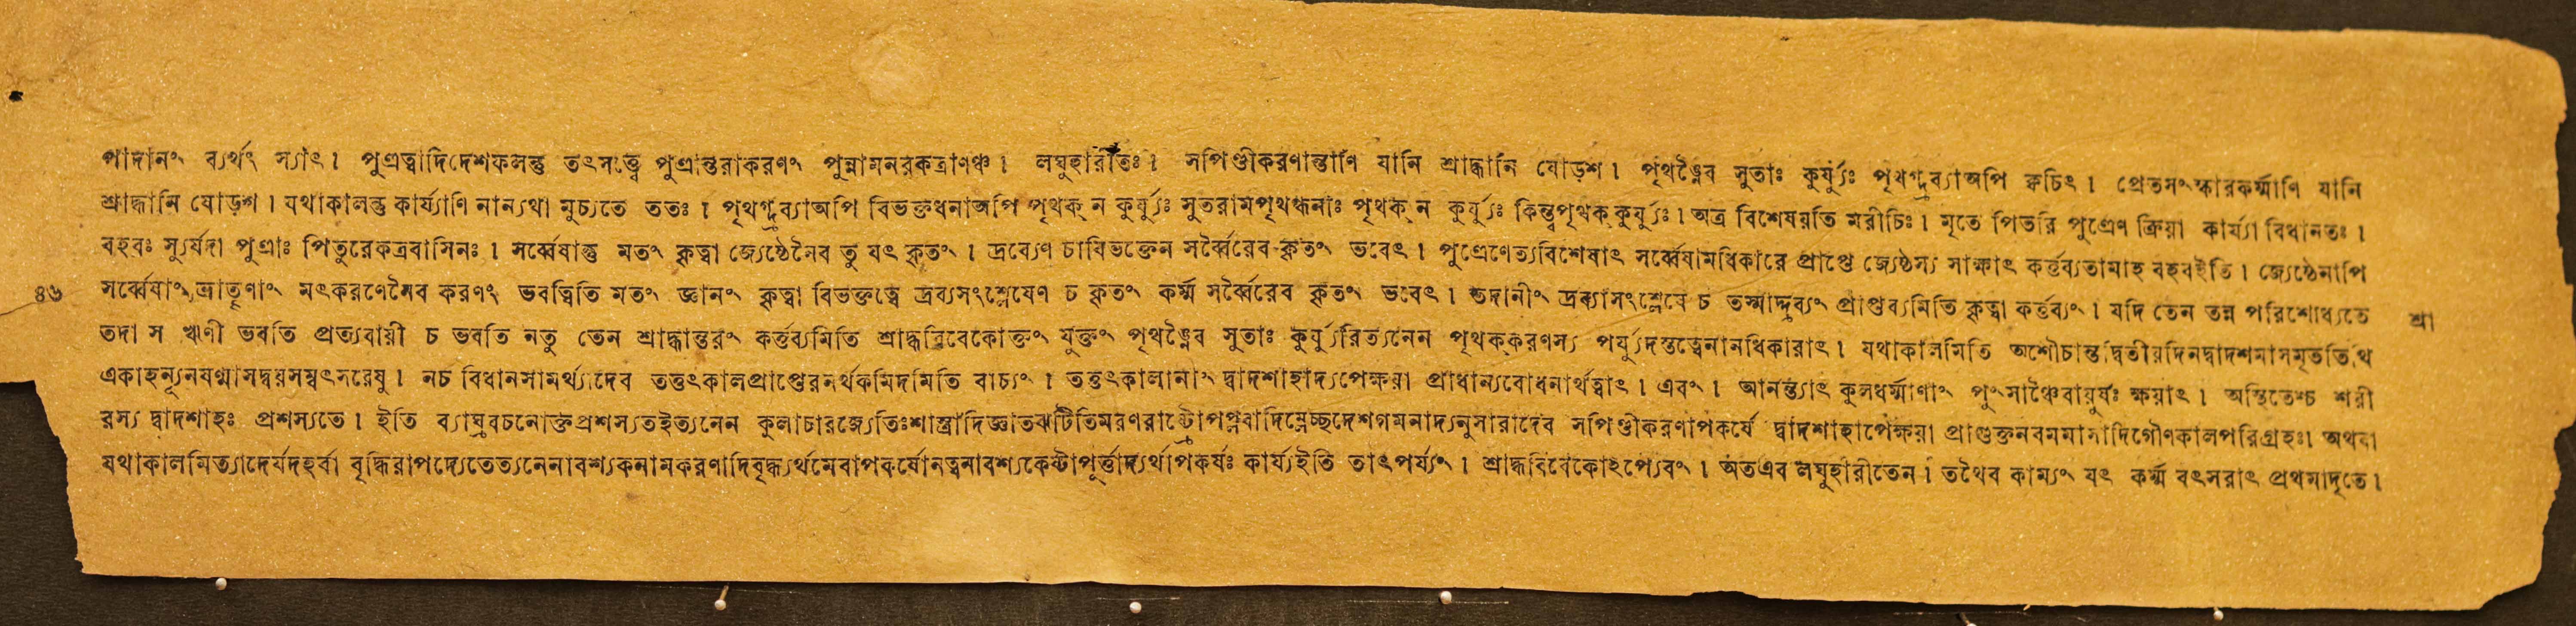 পাদানং ব্যর্থং স্যাৎ। পুত্রত্বাদিদেশফলন্তু তৎসত্ত্বে পুত্রান্তরাকরণং পুন্নামনরকত্রাণঞ্চ। লঘুহারীতঃ। সপিণ্ডীকরণান্তানি যানি শ্রাদ্ধানি ষোড়শ। পৃথঙ্নৈব সুতাঃ কুর্য্যুঃ পৃথগ্দ্রব্যাঅপি ক্বচিৎ। প্রেতসংস্কারকর্ম্মাণি যানি
শ্রাদ্ধানি ষোড়শ। যথাকালন্তু কার্য্যাণি নান্যথা মুচ্যতে ততঃ। পৃথগ্দ্রব্যাঅপি বিভক্তধনাঅপি পৃথক্ ন কুর্য্যুঃ সুতরামপৃথগ্ধনাঃ পৃথক্ ন কুর্য্যুঃ কিন্ত্বপৃথক্ কুর্য্যুঃ। অত্র বিশেষয়তি মরীচিঃ। মৃতে পিতরি পুত্রেণ ক্রিয়া কার্য্যা বিধানতঃ।
বহবঃ স্যুর্যদা পুত্রাঃ পিতুরেকত্রবাসিনঃ। সর্ব্বেষান্তু মতং কৃত্বা জ্যেষ্ঠেনৈব তু যৎ কৃতং। দ্রব্যেণ চাবিভক্তেন সর্ব্বৈরেব কৃতং ভবেৎ। পুত্রেণেত্যবিশেষাৎ সর্ব্বেষামধিকারে প্রাপ্তে জ্যেষ্ঠস্য সাক্ষাৎ কর্ত্তব্যতামাহ বহবইতি। জ্যেষ্ঠেনাপি
৪৬ সর্ব্বেষাং ভ্রাতৄণাং মৎকরণেনৈব করণং ভবত্বিতি মতং জ্ঞানং কৃত্বা বিভক্তত্বে দ্রব্যসংশ্লেষেণ চ কৃতং কর্ম্ম সর্ব্বৈরেব কৃতং ভবেৎ। তদানীং দ্রব্যাসংশ্লেষে চ তস্মাদ্দ্রব্যং প্রাপ্তব্যমিতি কৃত্বা কর্ত্তব্যং। যদি তেন তন্ন পরিশোধ্যতে শ্রা
তদা স ঋণী ভবতি প্রত্যবায়ী চ ভবতি নতু তেন শ্রাদ্ধান্তরং কর্ত্তব্যমিতি শ্রাদ্ধবিবেকোক্তং যুক্তং পৃথঙ্নৈব সুতাঃ কুর্য্যুরিত্যনেন পৃথক্করণস্য পর্য্যুদস্তত্বেনানধিকারাৎ। যথাকালমিতি অশৌচান্তদ্বিতীয়দিনদ্বাদশমাসমৃততিথি
একাহন্যূনষণ্মাসদ্বয়সম্বৎসরেষু। নচ বিধানসামর্থ্যাদেব তত্তৎকালপ্রাপ্তেরনর্থকমিদমিতি বাচ্যং। তত্তৎকালানাং দ্বাদশাহাদ্যপেক্ষয়া প্রাধান্যবোধনার্থত্বাৎ। এবং। আনন্ত্যাৎ কুলধর্ম্মাণাং পুংসাঞ্চৈবায়ুষঃ ক্ষয়াৎ। অস্থিতেশ্চ শরী
রস্য দ্বাদশাহঃ প্রশস্যতে। ইতি ব্যাঘ্রবচনোক্তপ্রশস্যতইত্যনেন কুলাচারজ্যেতিঃশাস্ত্রাদিজ্ঞাতঝটিতিমরণরাষ্ট্রোপপ্লবাদিম্লেচ্ছদেশগমনাদ্যনুসারাদেব সপিণ্ডীকরণাপকর্ষে দ্বাদশাহাপেক্ষয়া প্রাগুক্তনবমমাসাদিগৌণকালপরিগ্রহঃ। অথবা
যথাকালমিত্যাদের্যদহর্বা বৃদ্ধিরাপদ্যেতেত্যনেনাবশ্যকনামকরণাদিবৃদ্ধ্যর্থমেবাপকর্ষোনত্বনাবশ্যকেষ্টাপূর্ত্তাদ্যর্থাপকর্ষঃ কার্য্যইতি তাৎপর্য্যং। শ্রাদ্ধবিবেকোঽপ্যেবং। অতএব লঘুহারীতেন। তথৈব কাম্যং যৎ কর্ম্ম বৎসরাৎ প্রথমাদৃতে।